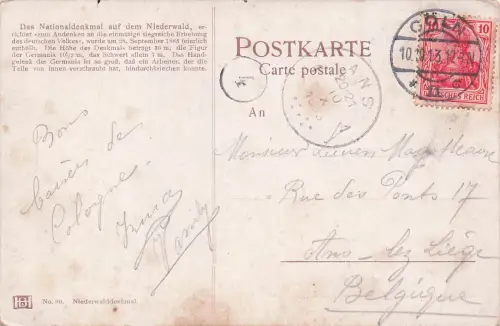 Das Nationaldenkmal auf dem Niederwald, er-
richtet »zum Andenken an die einmütige siegreiche Erhebung
des deutschen Volkes«, wurde am 28. September 1883 feierlich
enthüllt. Die Höhe des Denkmals beträgt 36 m, die Figur
der Germania 10½ m, das Schwert allein 7 m. Das Hand-
gelenk der Germania ist so groß, daß ein Arbeiter, der die
Teile von innen verschraubt hat, hindurchkriechen konnte.
POSTKARTE
Carte postale
An
CÖLN
10.10.13
10
DEUTSCHES REICH
ANS
Bons
baisers de
Cologne.
Irma
Monsieur Lucien
Rue des Ponts 17
Ans-lez Liège
Belgique
No. 80. Niederwalddenkmal.